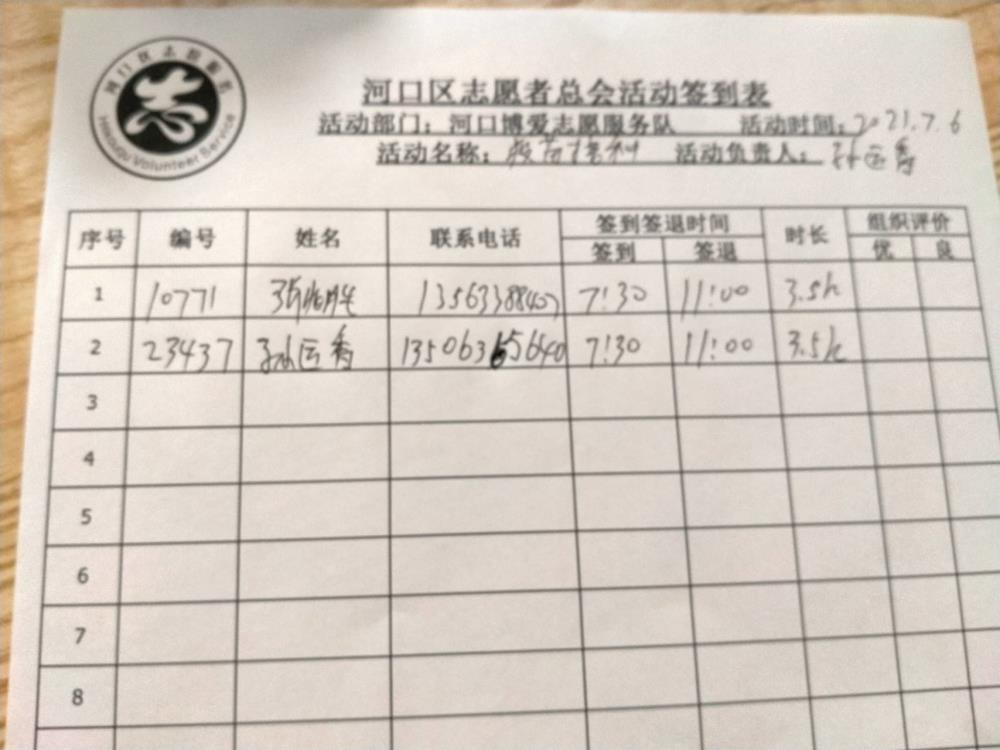 河口区志愿者
Hekouqu Volunteer Service
河口区志愿者总会活动签到表
活动部门：河口博爱志愿服务队 活动时间：2021.7.6
活动名称：疫苗接种 活动负责人：孙运香
序号 编号 姓名 联系电话 签到签退时间 时长 组织评价
签到 签退 优 良
1 10771 13563388407 7:30 11:00 3.5h
2 23437 孙运香 13506365640 7:30 11:00 3.5h
3
4
5
6
7
8